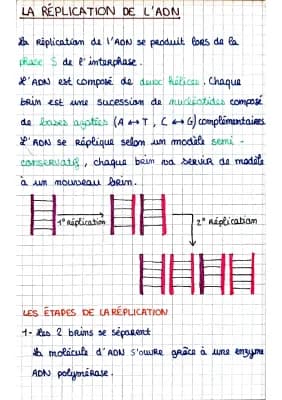 LA RÉPLICATION DE L'ADN
La réplication de l'ADN se produit lors de la
phase S de l'interphase.
L'ADN est composé de deux hélices. Chaque
brin est une sucession de nucléotides composé
de bases azotées (A ↔ T, C ↔ G) complémentaires.
L'ADN se réplique selon un modèle semi-
conservatif, chaque brin va servir de modèle
à un nouveau brin.
1° réplication
2° réplication
LES ÉTAPES DE LA RÉPLICATION
1- Les 2 brins se séparent
La molécule d'ADN s'ouvre grâce à une enzyme
ADN polymérase.